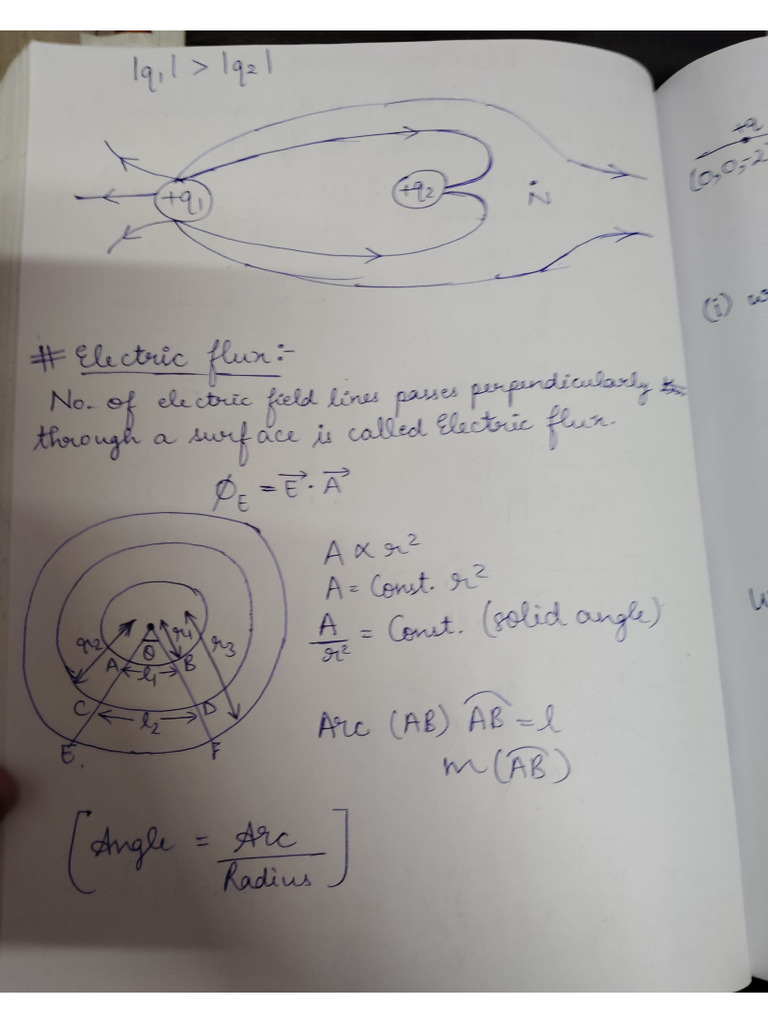 |q₁| > |q₂|
+q₁
+q₂
N
+q
(0,0,-2
(i)
# Electric flux:-
No. of electric field lines passes perpendicularly
through a surface is called Electric flux.
ϕ_E = E⃗ · A⃗
A ∝ r²
A = Const. r²
A/r² = Const. (solid angle)
r₂ r₁ r₃
θ
A l₁ B
C l₂ D
E. F
Arc (AB) ⌒AB = l
m(⌒AB)
[Angle = Arc/Radius]